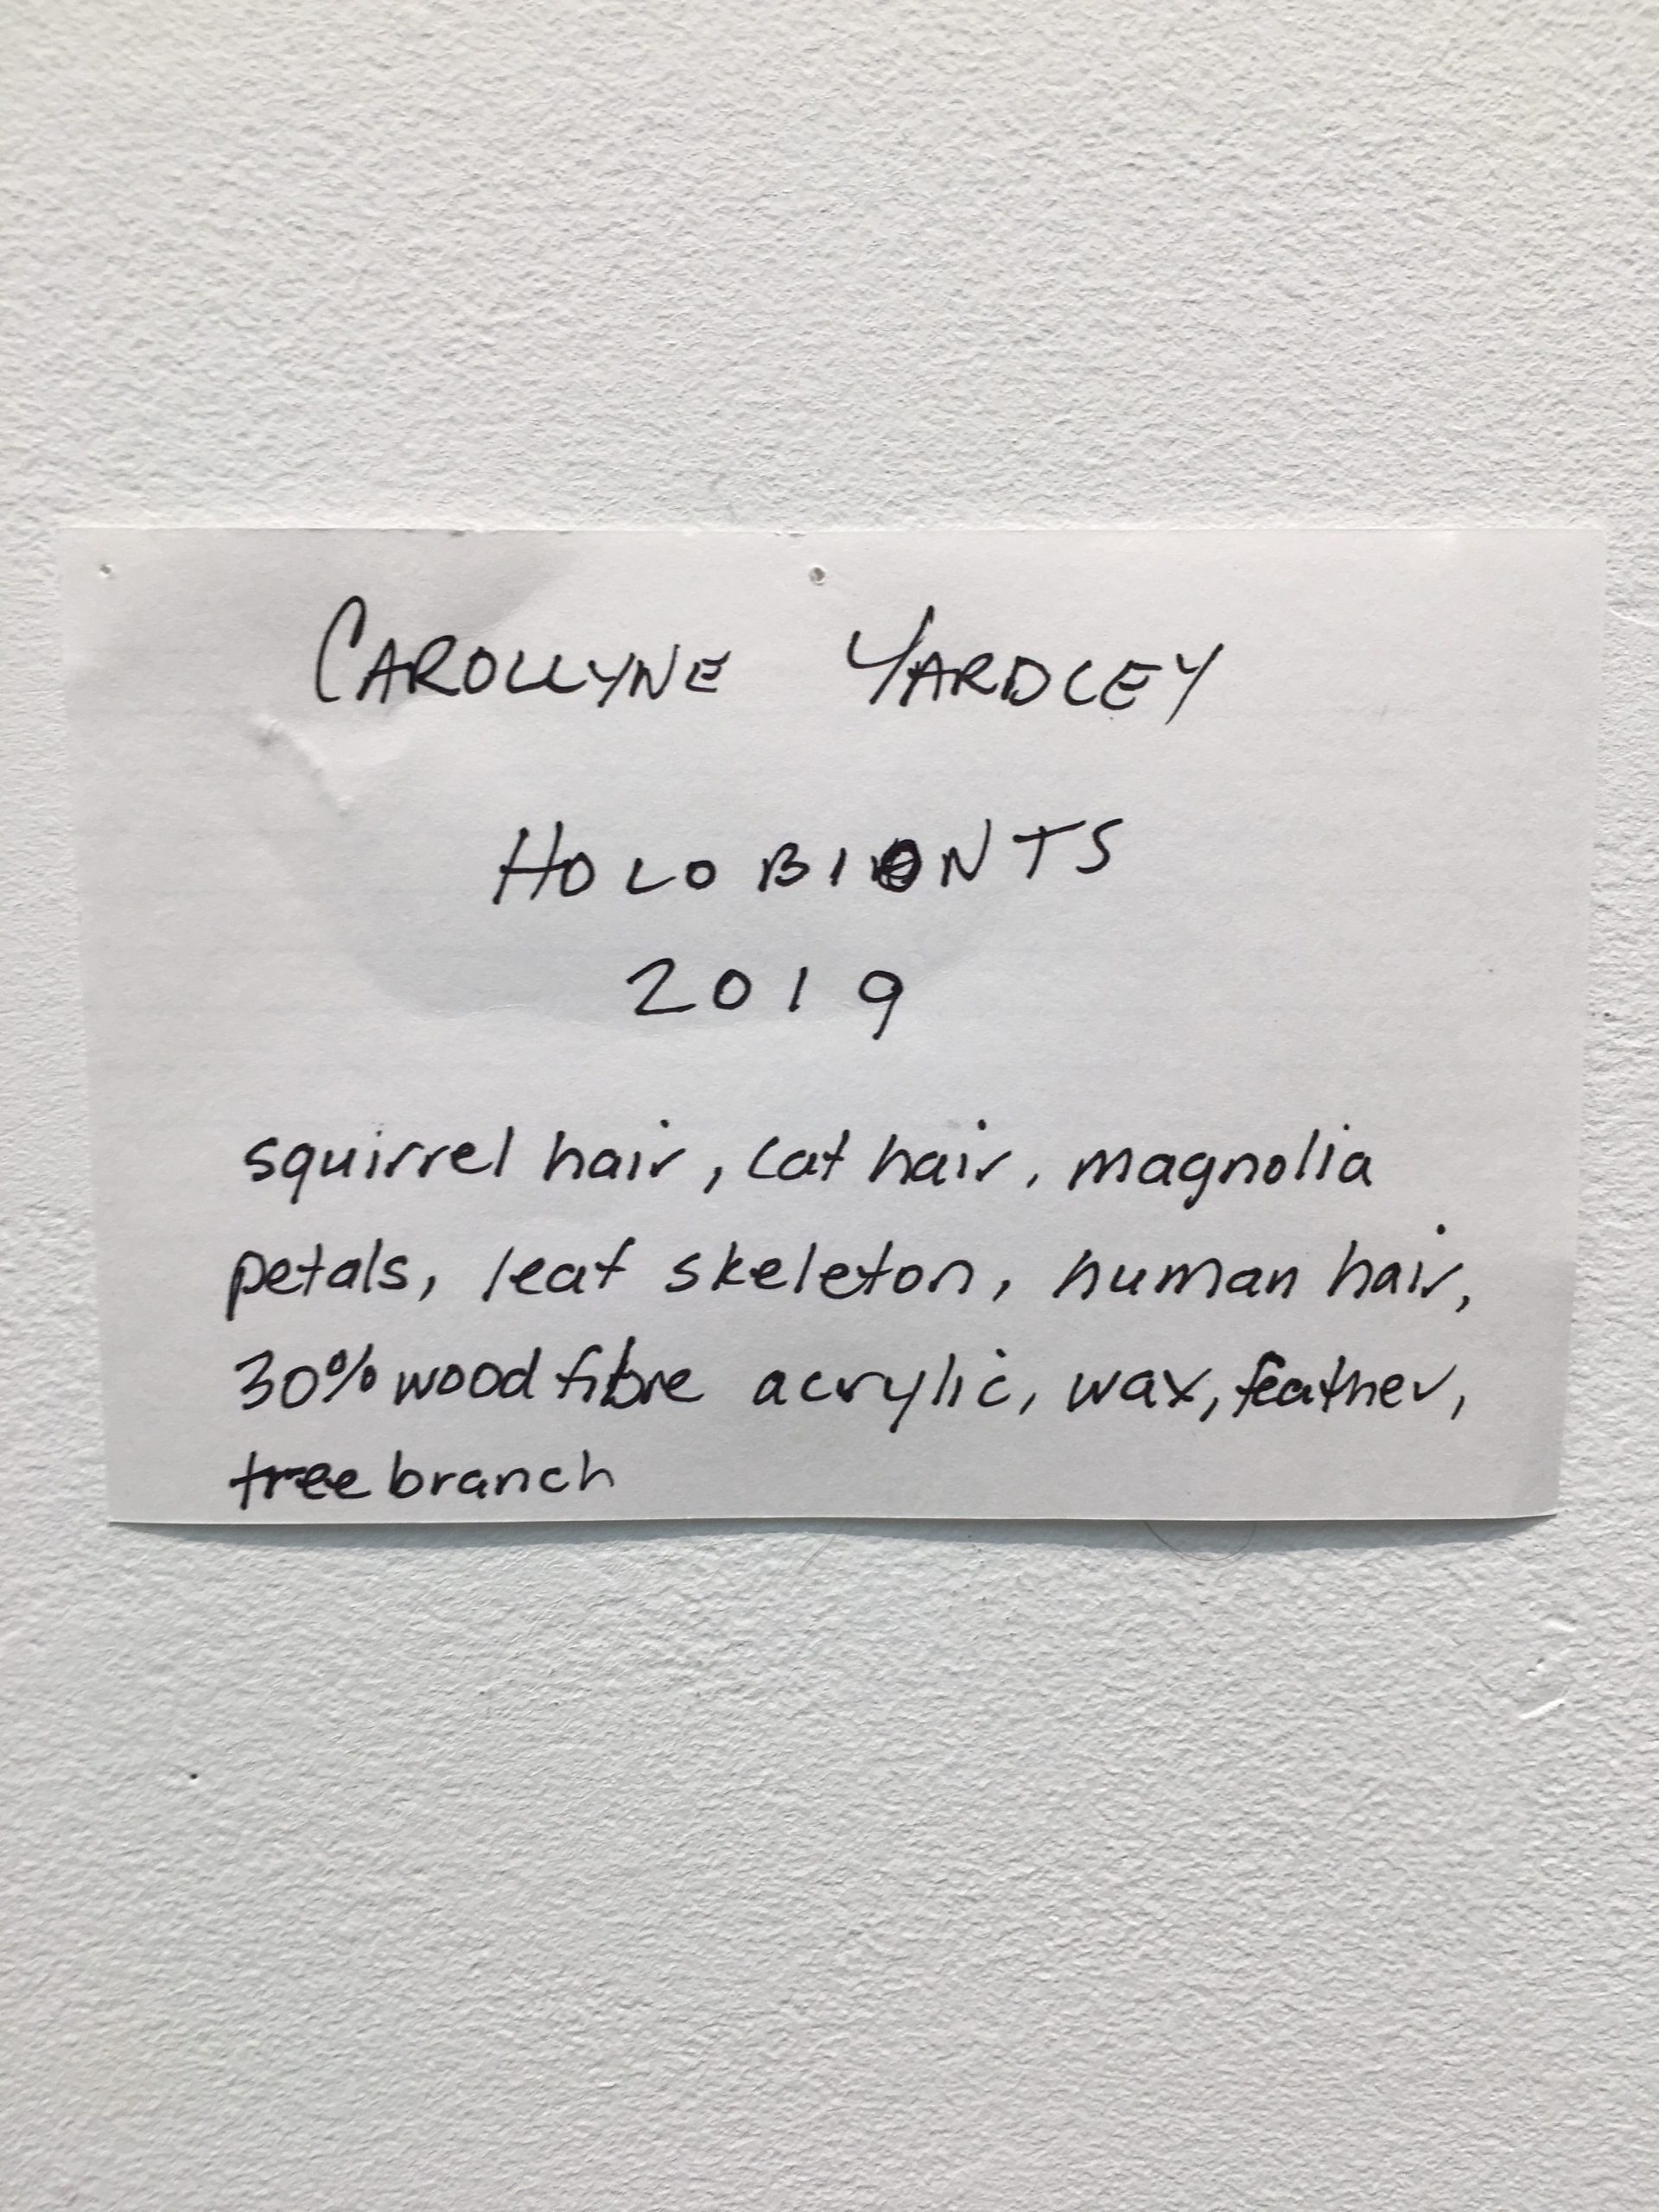 CAROLLYNE YARDLEY
HOLOBIONTS
2019
squirrel hair, cat hair, magnolia
petals, leaf skeleton, human hair,
30% wood fibre acrylic, wax, feather,
tree branch